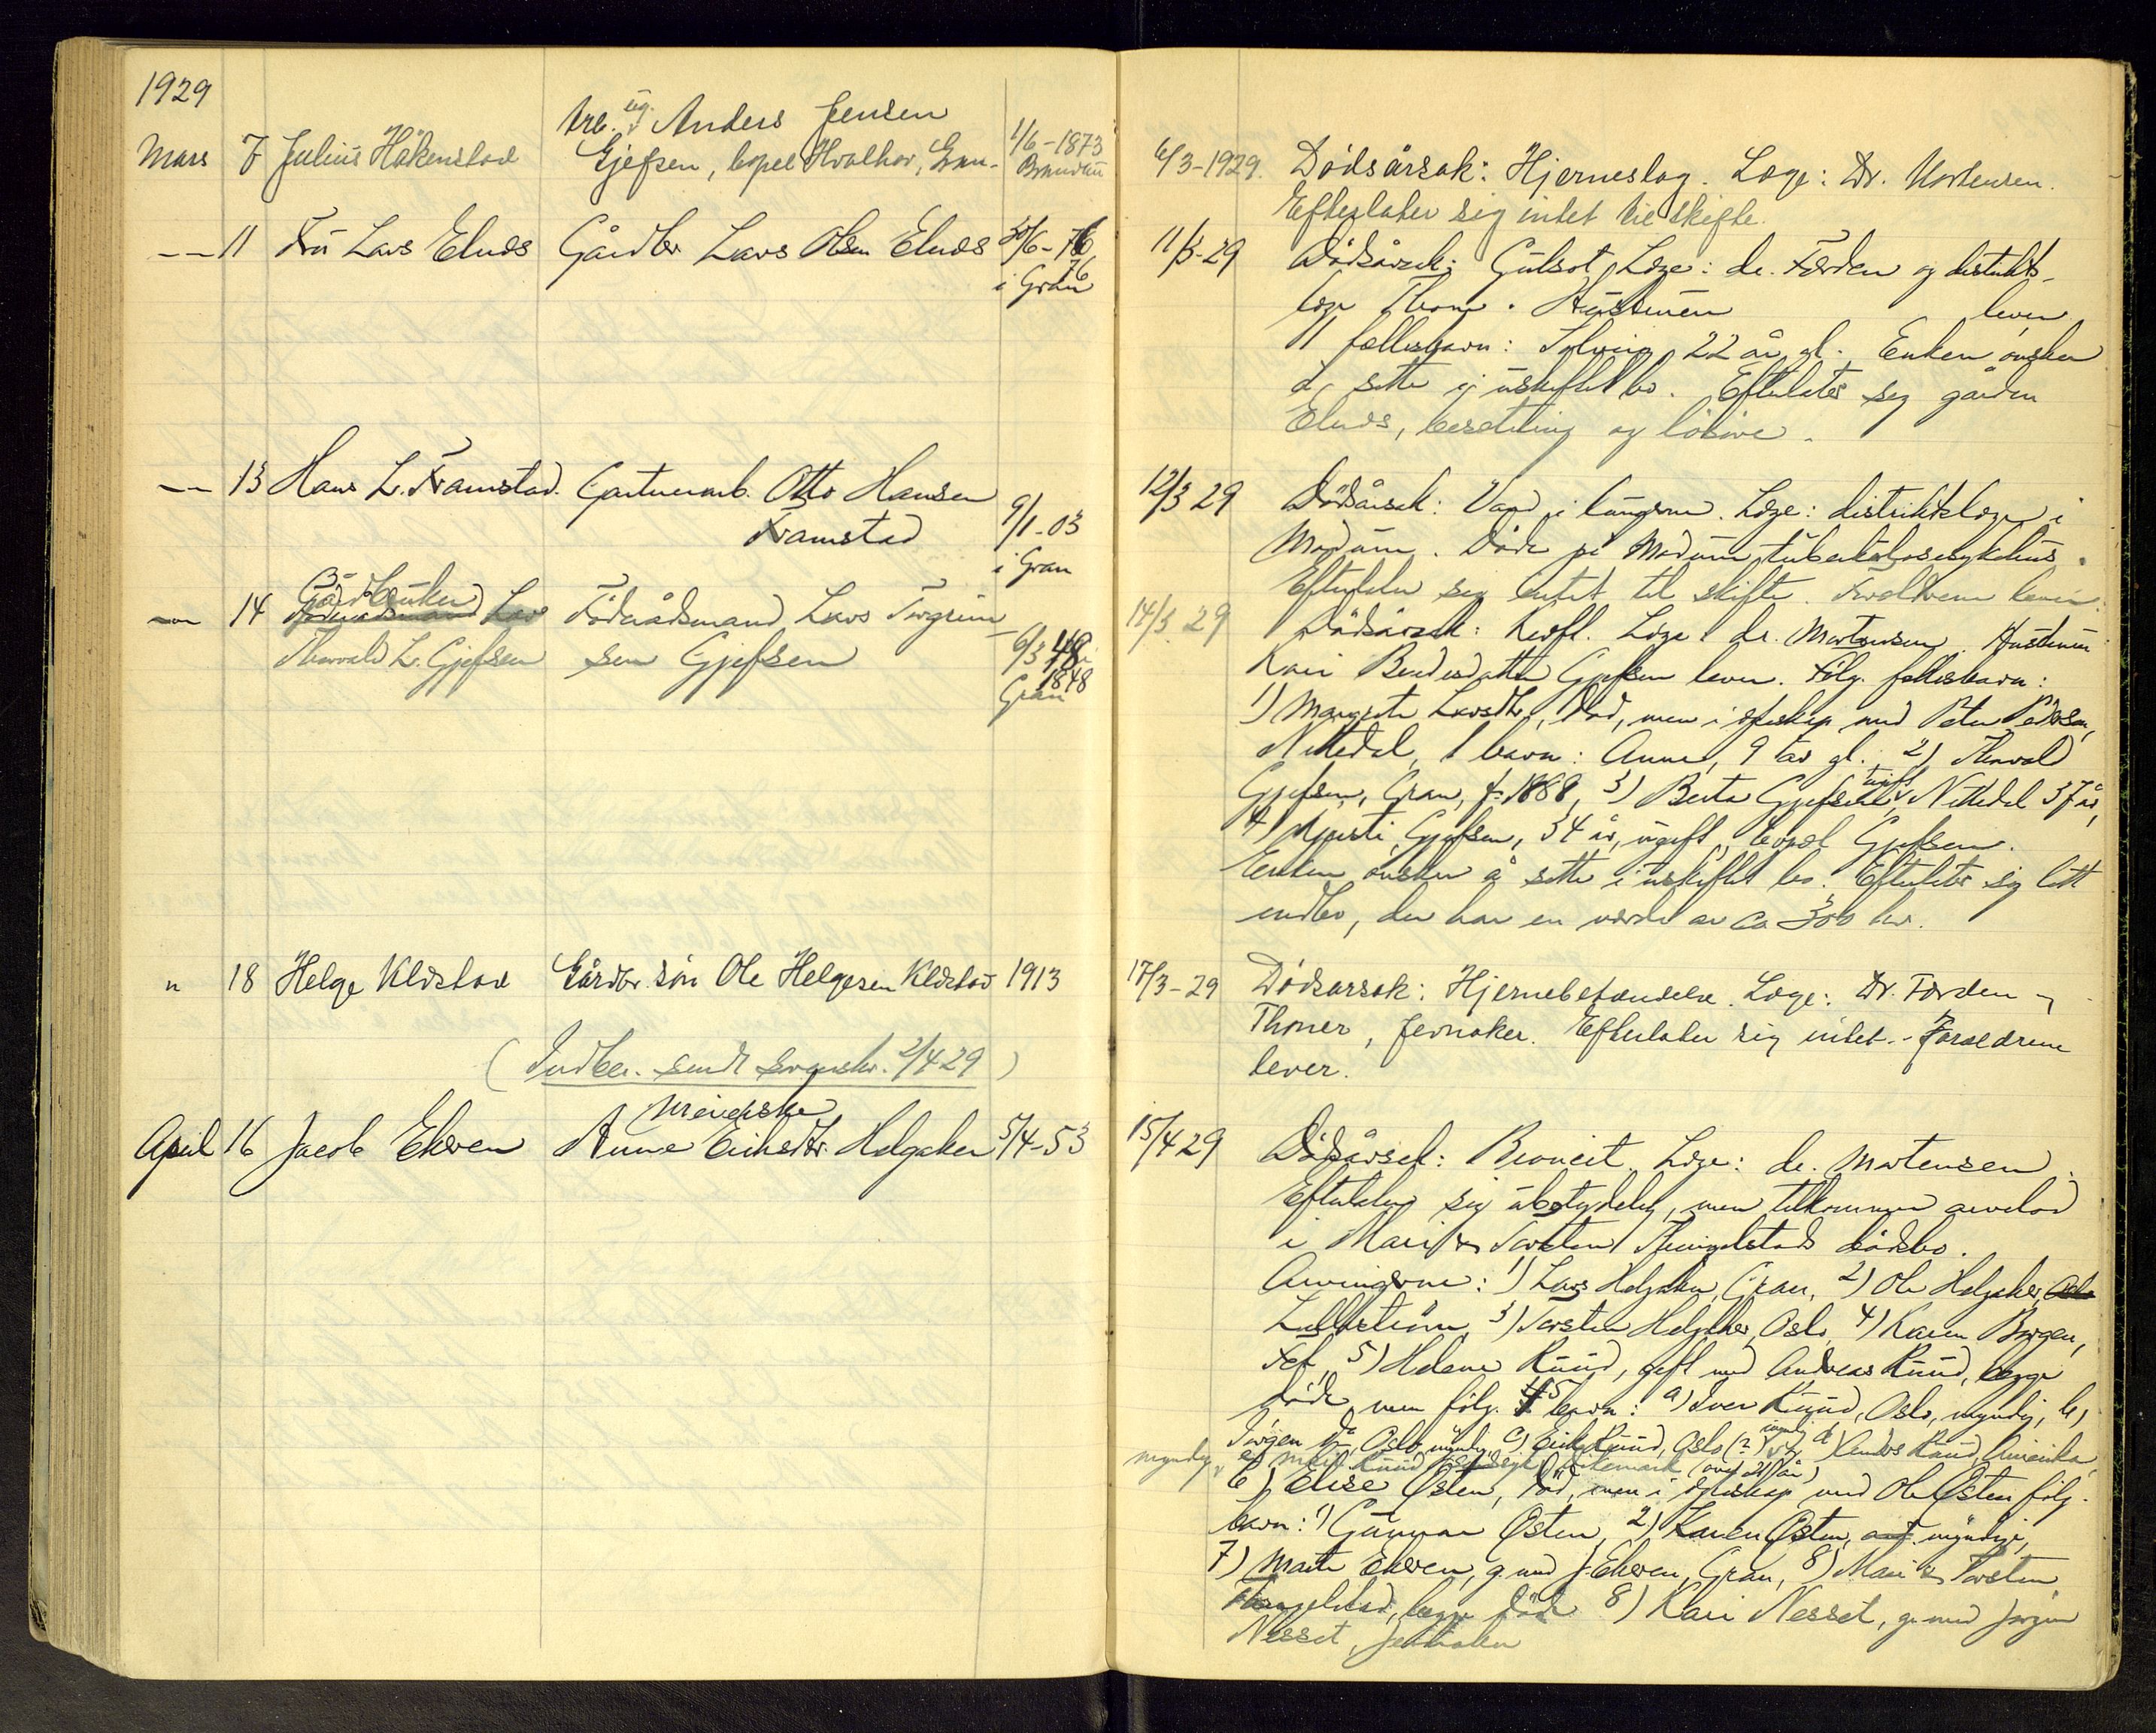 1929
Arb. ug. Anders Jensen
Mars 7 Julius Håkenstad Gjefsen, bopel Hvalhov, Gran. 1/6-1873
Brandbu
6/3-1929. Dødsårsak: Hjerneslag. Læge: Dr. Mortensen.
Efterlater sig intet til skifte.
-- 11 Fru Lars Elnes Gårdbr Lars Olsen Elnes 30/6-76
76
i Gran
11/3-29 Dødsårsak: Gulsot, Læge: dr. Førden og distrikts-
læge Thoner. Hustruen lever
11 fællesbarn: Solveig 22 år gl. Enken ønsker
å sitte i uskiftet bo. Efterlater sig gården
Elnes, besetning og løsøre.
-- 13 Hans L. Framstad. Gartnerarb. Otto Hansen
Framstad 9/1-03
i Gran
12/3 29 Dødsårsak: Vand i lungerne. Læge: distriktslæge i
Modum. Døde på Modum tuberkulosesykehus.
Efterlater sig intet til skifte. Foreldrene lever.
-- 14 Gårdbruker
Føderådsmand Lars Føderådsmand Lars Torgrim-
Thorvald L. Gjefsen sen Gjefsen 6/3 48
1848
Gran
14/3 29 Dødsårsak: Kreft. Læge: dr. Mortensen. Hustruen
Kari Bendesdatter Gjefsen lever. Følg. fællesbarn:
1) Margrete Larsdtr, død, men i egteskap med Peter Pedersen,
Nittedal, 1 barn: Anne, 9 år gl., 2) Thorvald
Gjefsen, Gran, f. 1888, 3) Berta Gjefsen, ugift, Nittedal 37 år,
4) Kjersti Gjefsen, 34 år, ugift, bopæl Gjefsen.
Enken ønsker å sitte i uskiftet bo. Efterlater sig litt
indbo, der har en verdi av ca 300 kr.
" 18 Helge Kldstad Gårdbr. søn Ole Helgesen Kldstad 1913
17/3-29 Dødsarsak: Hjernebetændelse. Læge: Dr. Førden og
Thoner, Jevnaker. Efterlater sig intet. - Foreldrene
lever.
(Indber. sendt sorenskr. 2/4 29)
Privenske
April 16 Jacob Ekren Anne Eriksdtr. Helgaker 5/4-53
15/4 29 Dødsårsak: Bronkit. Læge: dr. Mortensen.
Efterlater sig ubetydelig, men tilkommer arvelod
i Mari & Torsten Thingelstads dødsbo.
Arvingerne: 1) Lars Helgaker, Gran, 2) Ole Helgaker, Oslo
Lillestrøm, 3) Torsten Helgaker, Oslo, 4) Karen Borgen,
5) Helene Ruud, gift med Andreas Ruud, begge
døde, men følg. 5 barn: a) Iver Ruud, Oslo, myndig, b)
Jørgen do, Oslo, myndig, c) Erik Ruud, Oslo (?) myndig, d) Anders Ruud, Amerika,
myndig, e) Ruud, Dikemark (over 21 år)
6) Elise Østen, død, men i egteskap med Ole Østen følg.
barn: 1) Gunnar Østen, 2) Karen Østen, myndige,
7) Marte Ekren, g. med J. Ekren, Gran, 8) Mari & Torsten
Thingelstad, begge døde 8) Kari Nesset, g. med Jørgen
Nesset, Jevnaker